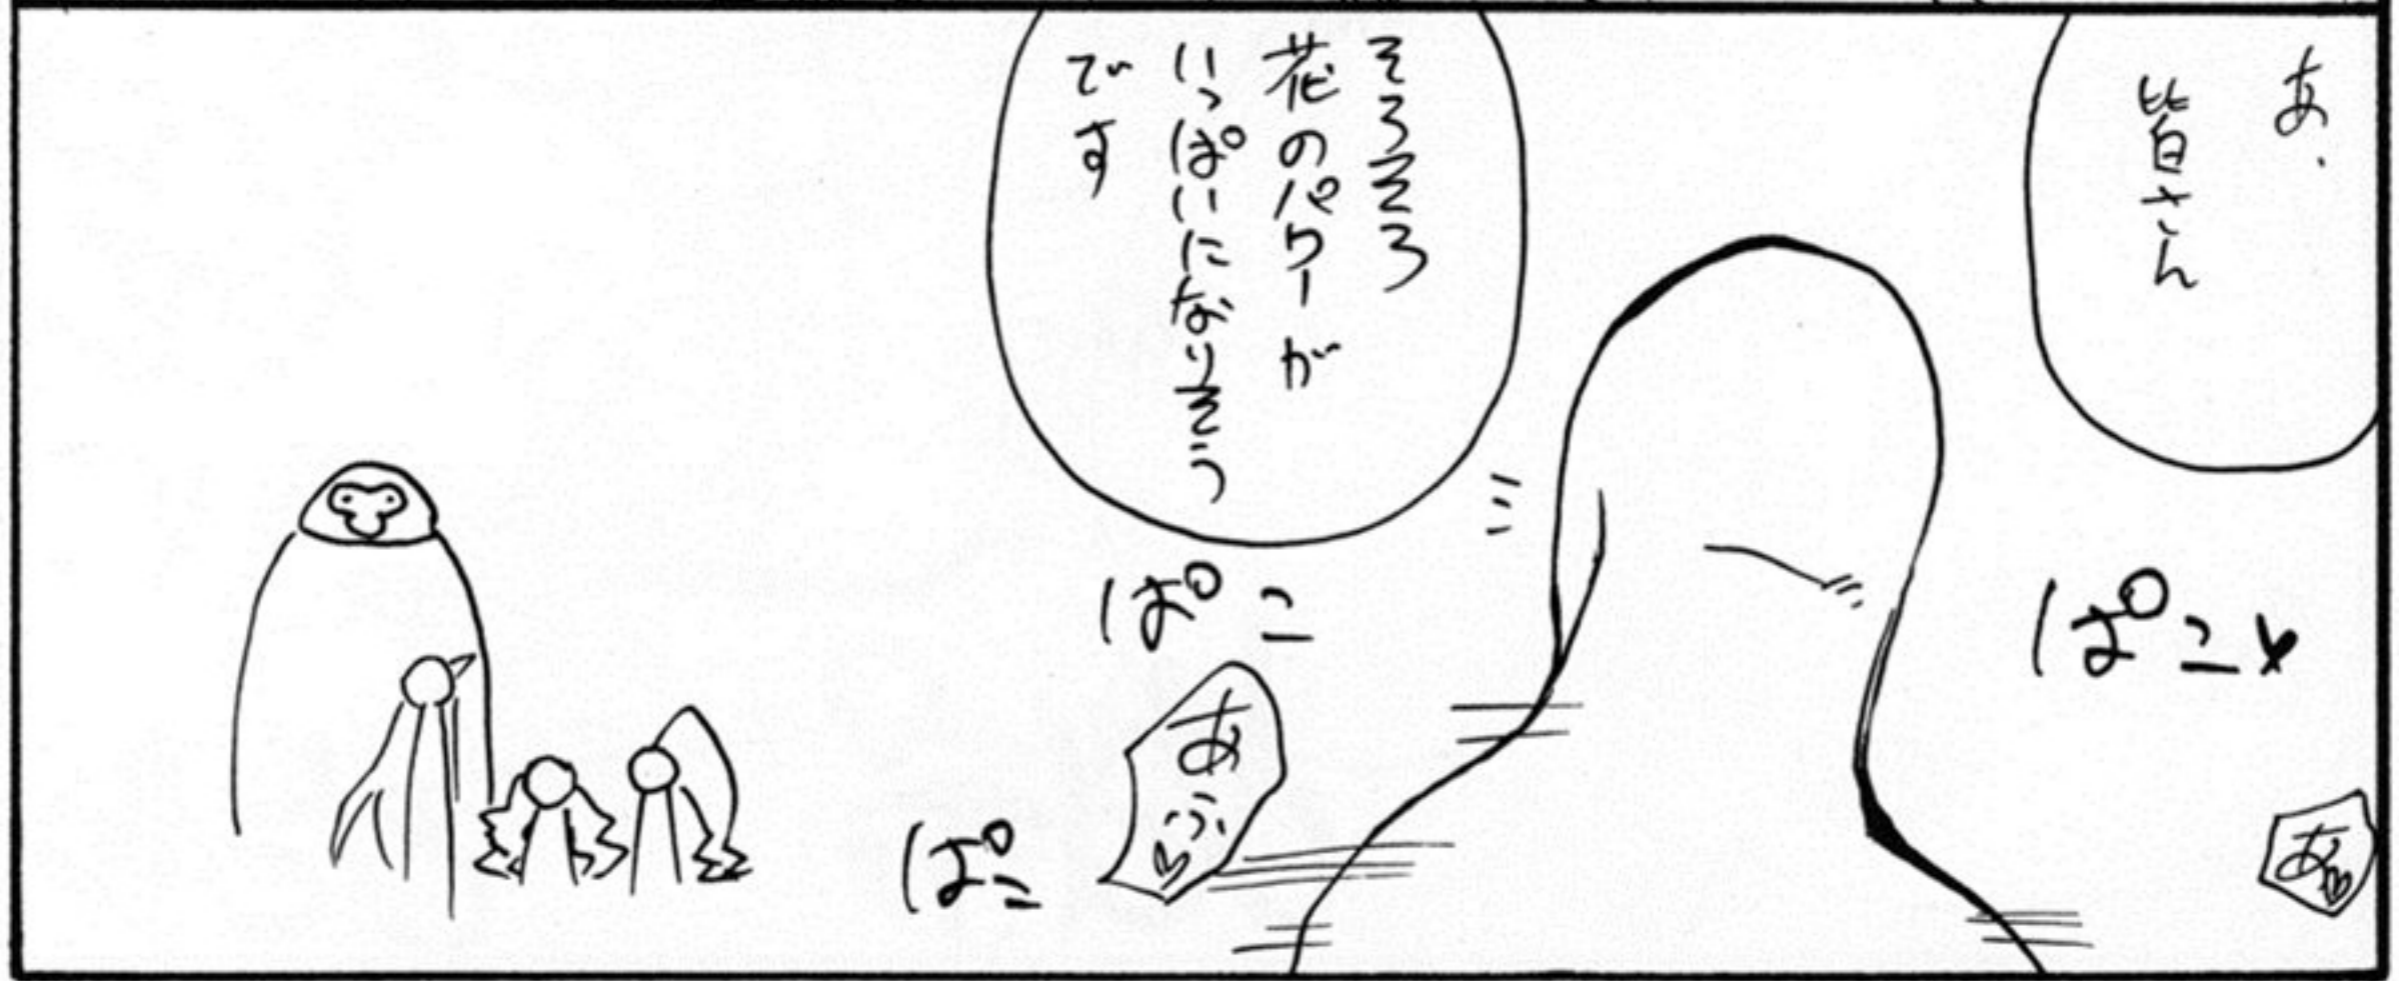 あ、
皆さん
そろそろ
花のパワーが
いっぱいになりそう
です
ぱこ♥
あ♡
ぱこ
あふ♡
ぱこ